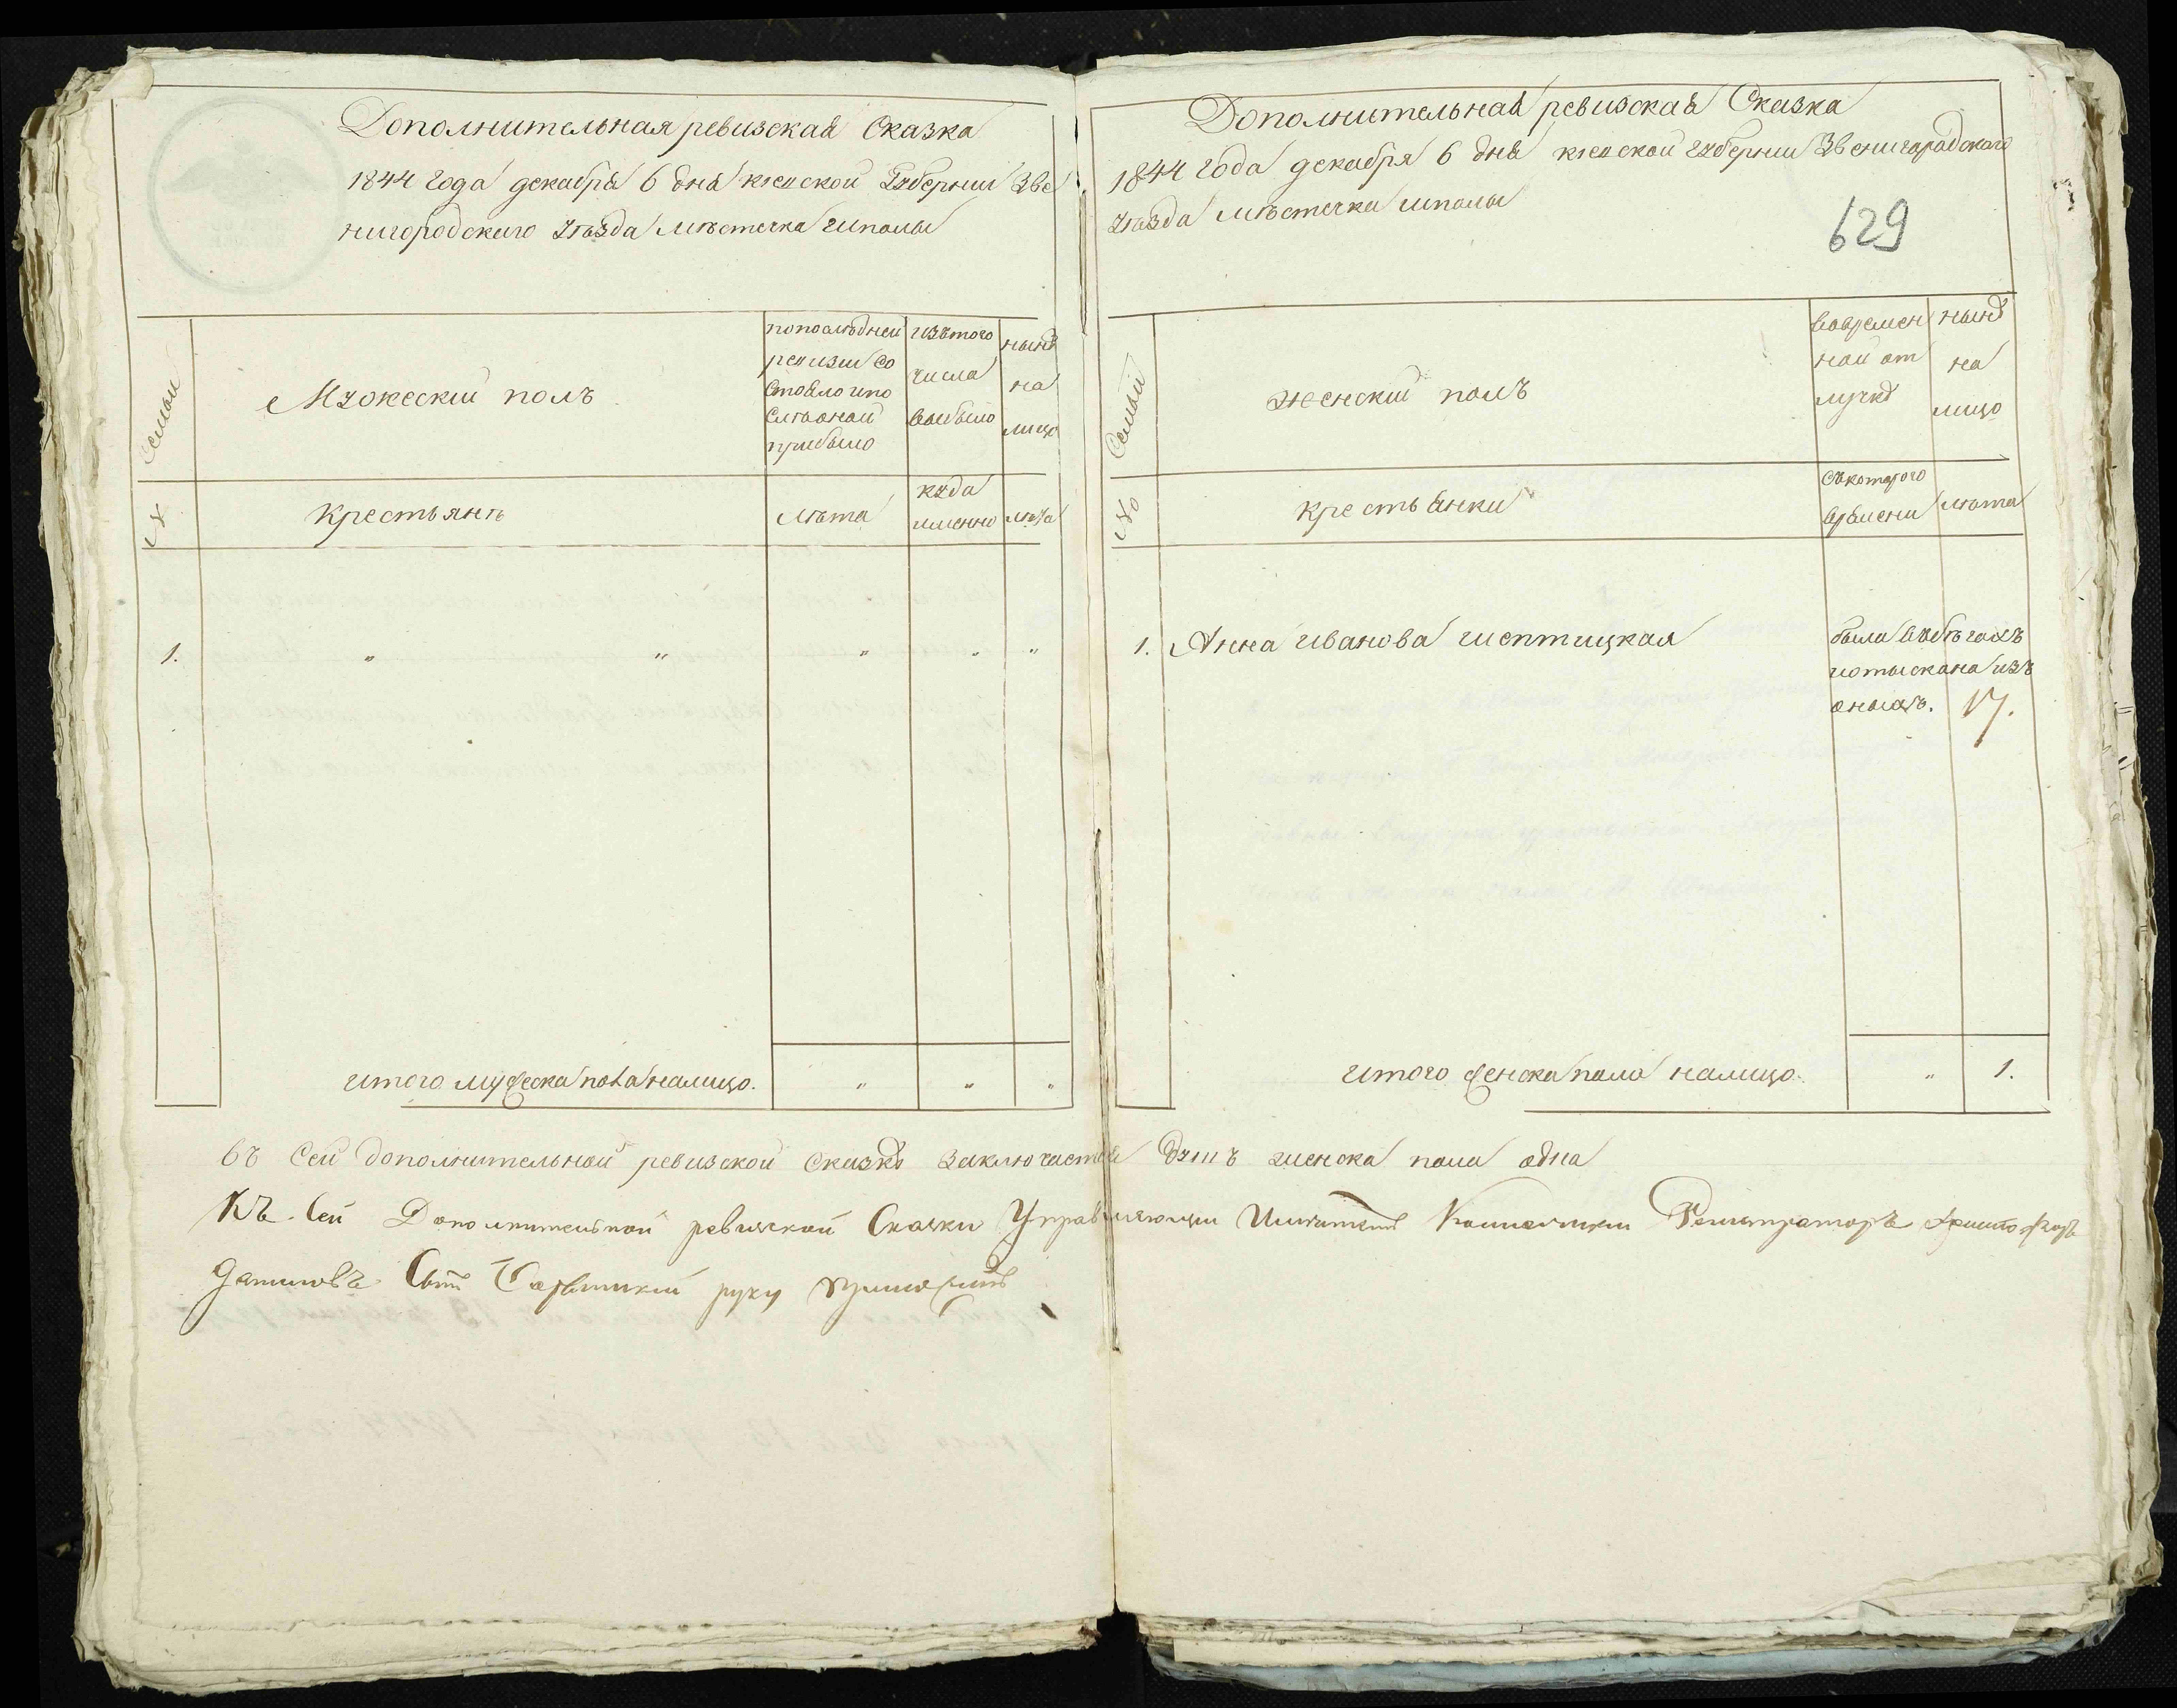 Дополнительная ревизская Сказка
1844 года декабря 6 дня киевской Губернии Зве
нигородского уѣзда мѣстечка шполы
Семьи
Мужескии полъ
по послѣдней ревизии со стояло и по слѣ оной прибыло
изъ того числа выбыло
нынѣ на лицо
№
Крестьянѣ
лѣта
куда именно
лѣта
1. " " " " "
итого мужеска пола налицо. " " "
Дополнительная ревизская Сказка
1844 года декабря 6 дня киевской губернии Звенигородского
уѣзда мѣстечка шполы
629
Семьи
женский полъ
во времен ной от лучкѣ
нынѣ на лицо
№
крестьянки
съ которого времени
лѣта
1. Анна Иванова шептицкая
была въ бѣгахъ
и отыскана изъ
оныхъ. 17.
итого женска пола налицо. " 1.
въ сей дополнительной ревизской сказкѣ заключается душъ женска пола одна
Къ сей Дополнительной ревизской Сказки Управляющии Имѣниемъ Регистраторъ
руку приложилъ